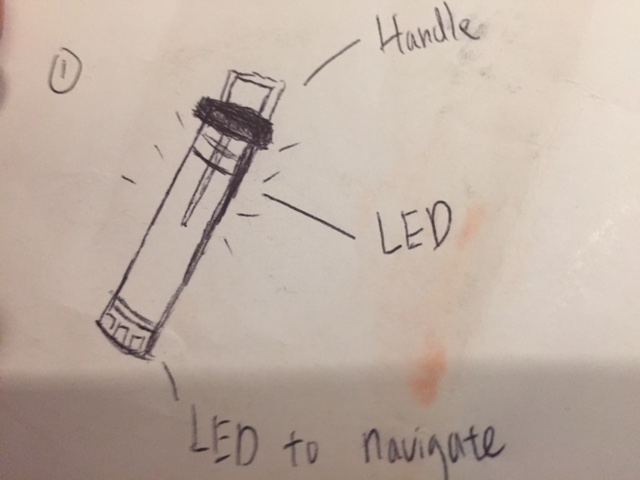 ①
Handle
LED
LED to navigate